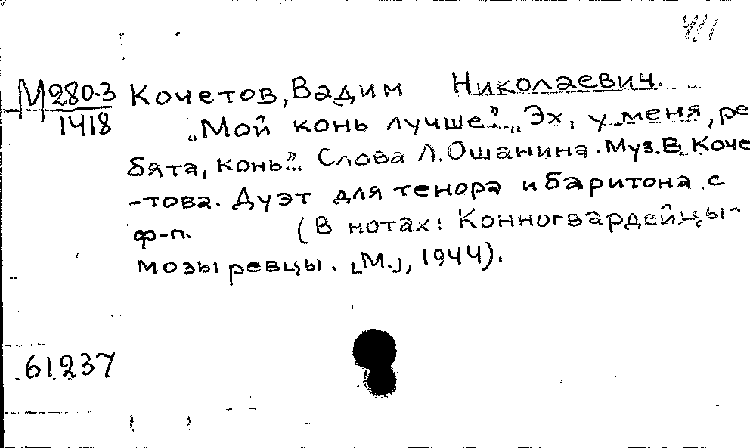 М 280-3 Кочетов, Вадим Николаевич.
1418
„Мой конь лучше". „Эх, у меня, ре
бята, конь"... Слова Л. Ошанина. Муз. В. Коче
-това. Дуэт для тенора и баритона с
ф-п. (В нотах: Конногвардейцы-
мозыревцы. [М.], 1944).
61237